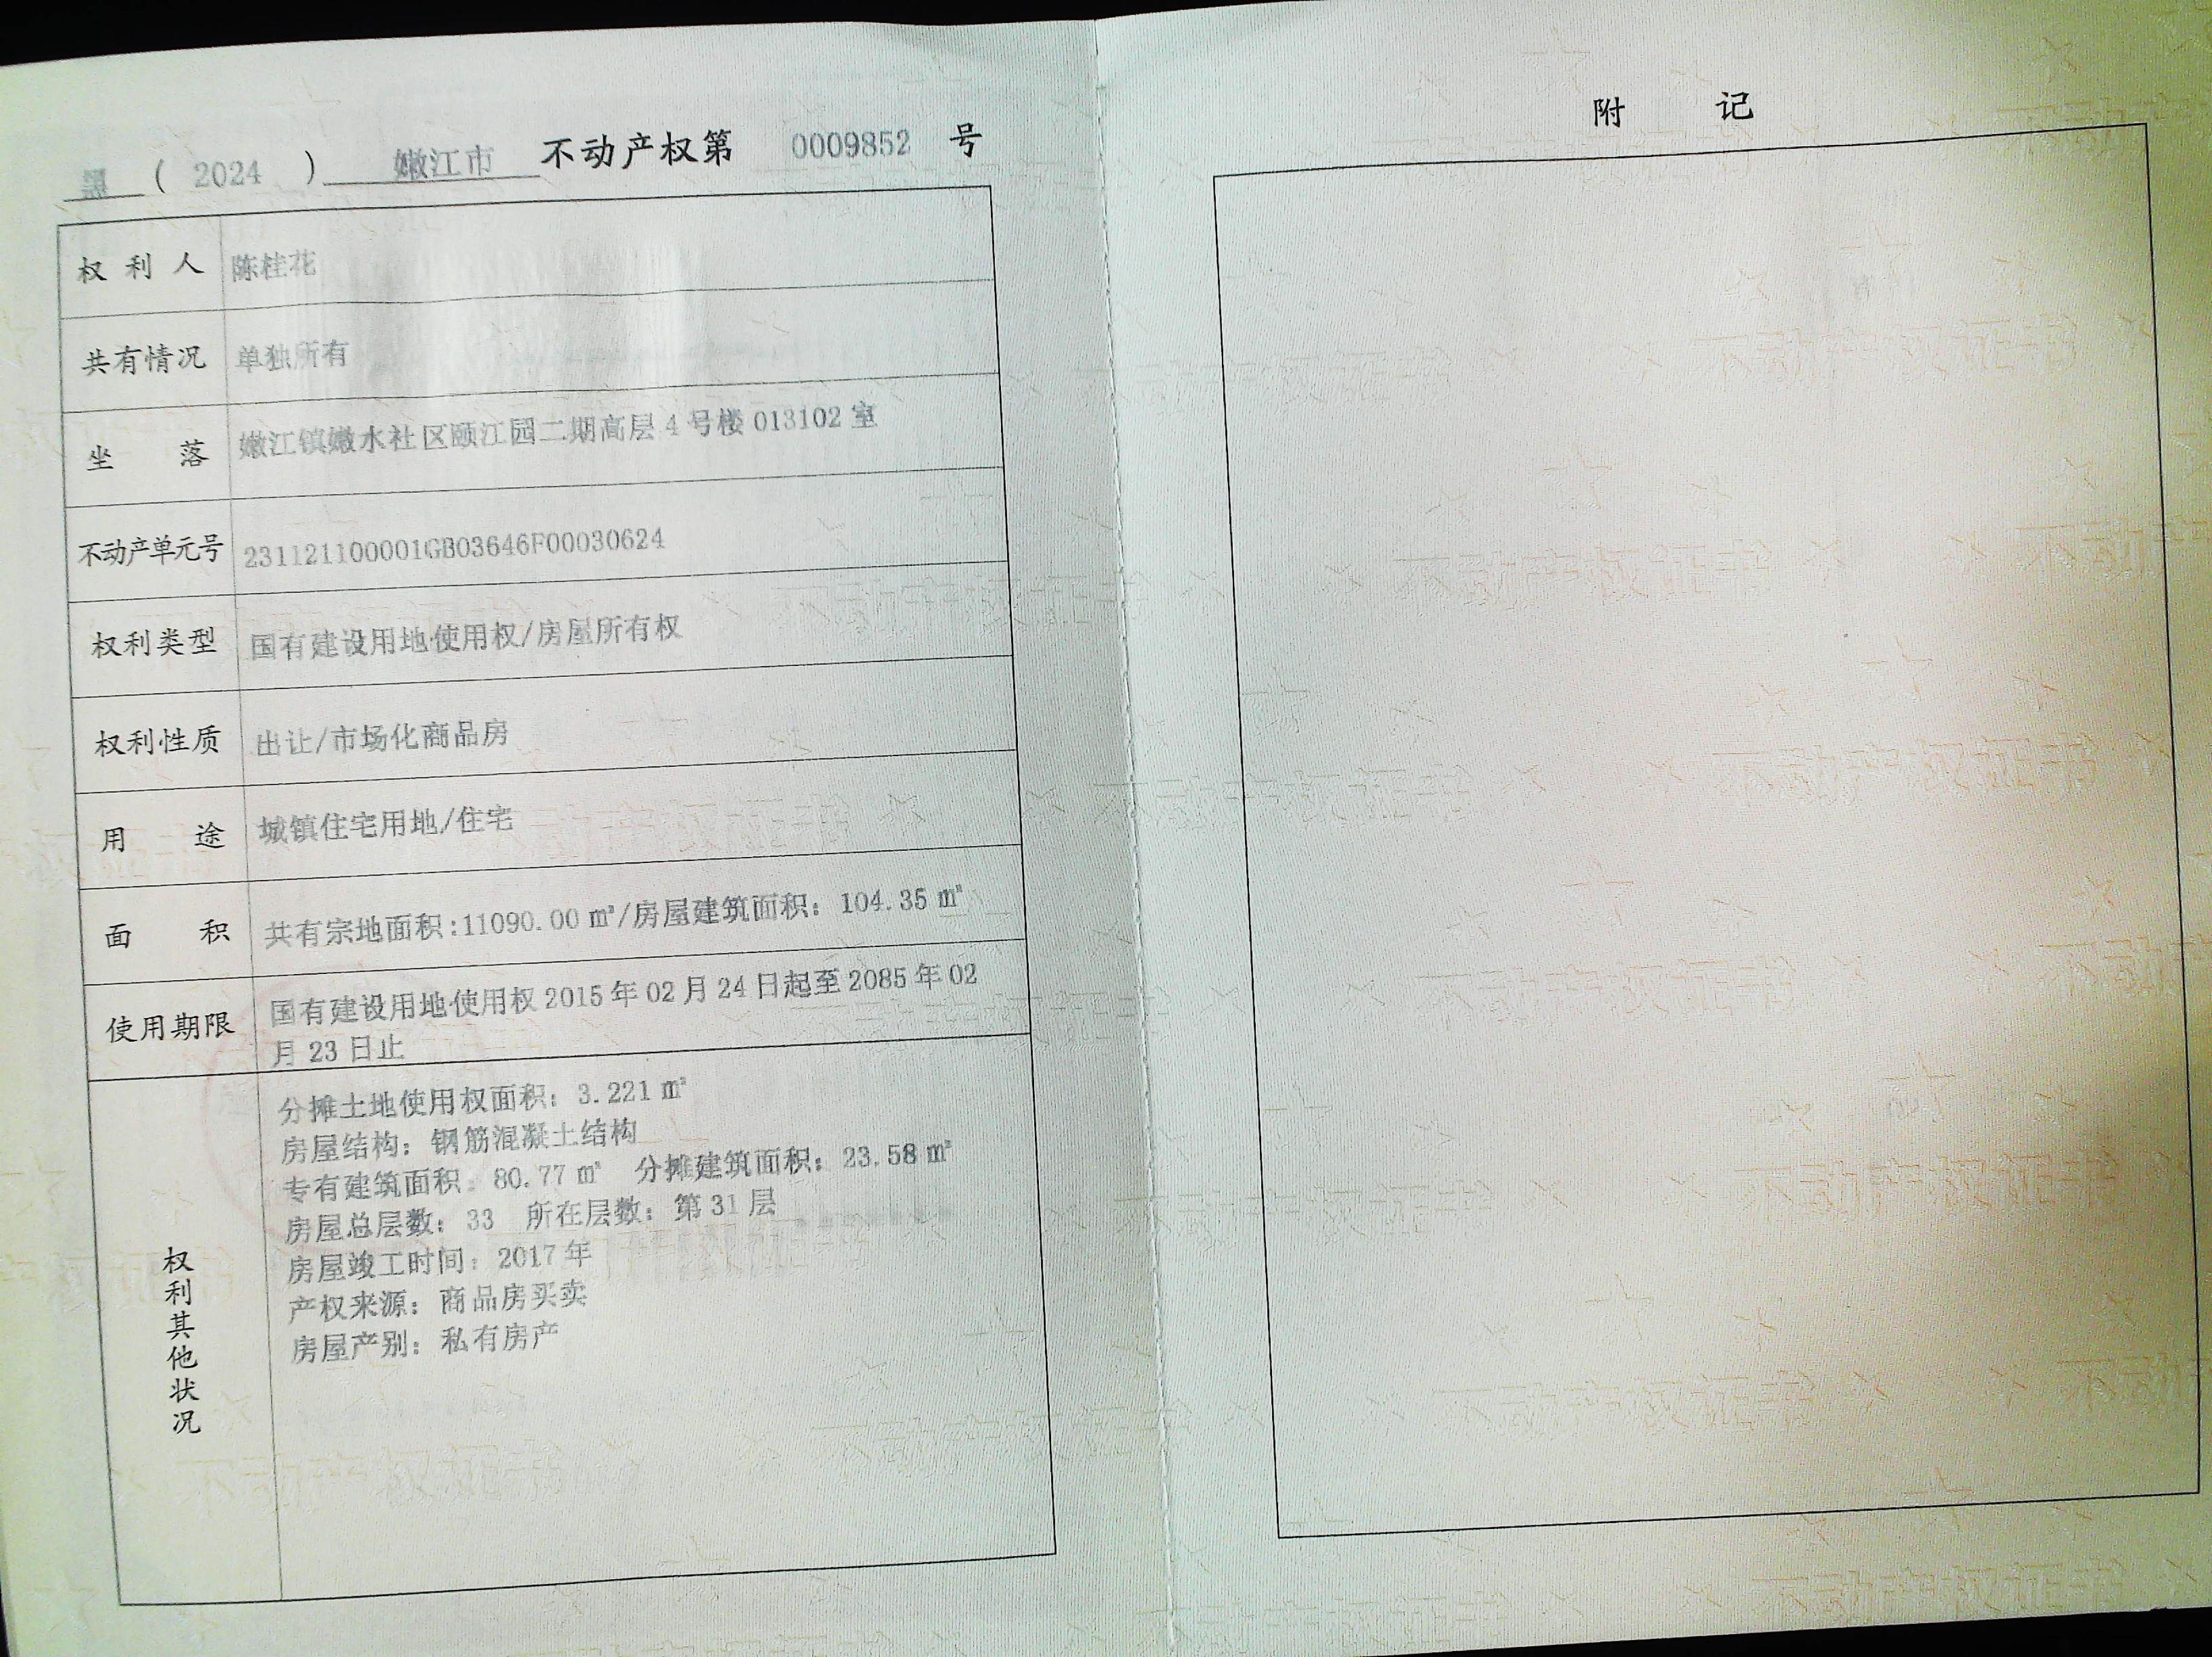 黑 ( 2024 ) 嫩江市 不动产权第 0009852 号
权利人 陈桂花
共有情况 单独所有
坐落 嫩江镇嫩水社区颐江园二期高层 4 号楼 013102 室
不动产单元号 231121100001GB03646F00030624
权利类型 国有建设用地使用权/房屋所有权
权利性质 出让/市场化商品房
用途 城镇住宅用地/住宅
面积 共有宗地面积:11090.00 ㎡/房屋建筑面积：104.35 ㎡
使用期限 国有建设用地使用权 2015 年 02 月 24 日起至 2085 年 02
月 23 日止
权利其他状况
分摊土地使用权面积：3.221 ㎡
房屋结构：钢筋混凝土结构
专有建筑面积：80.77 ㎡ 分摊建筑面积：23.58 ㎡
房屋总层数：33 所在层数：第 31 层
房屋竣工时间：2017 年
产权来源：商品房买卖
房屋产别：私有房产
附记